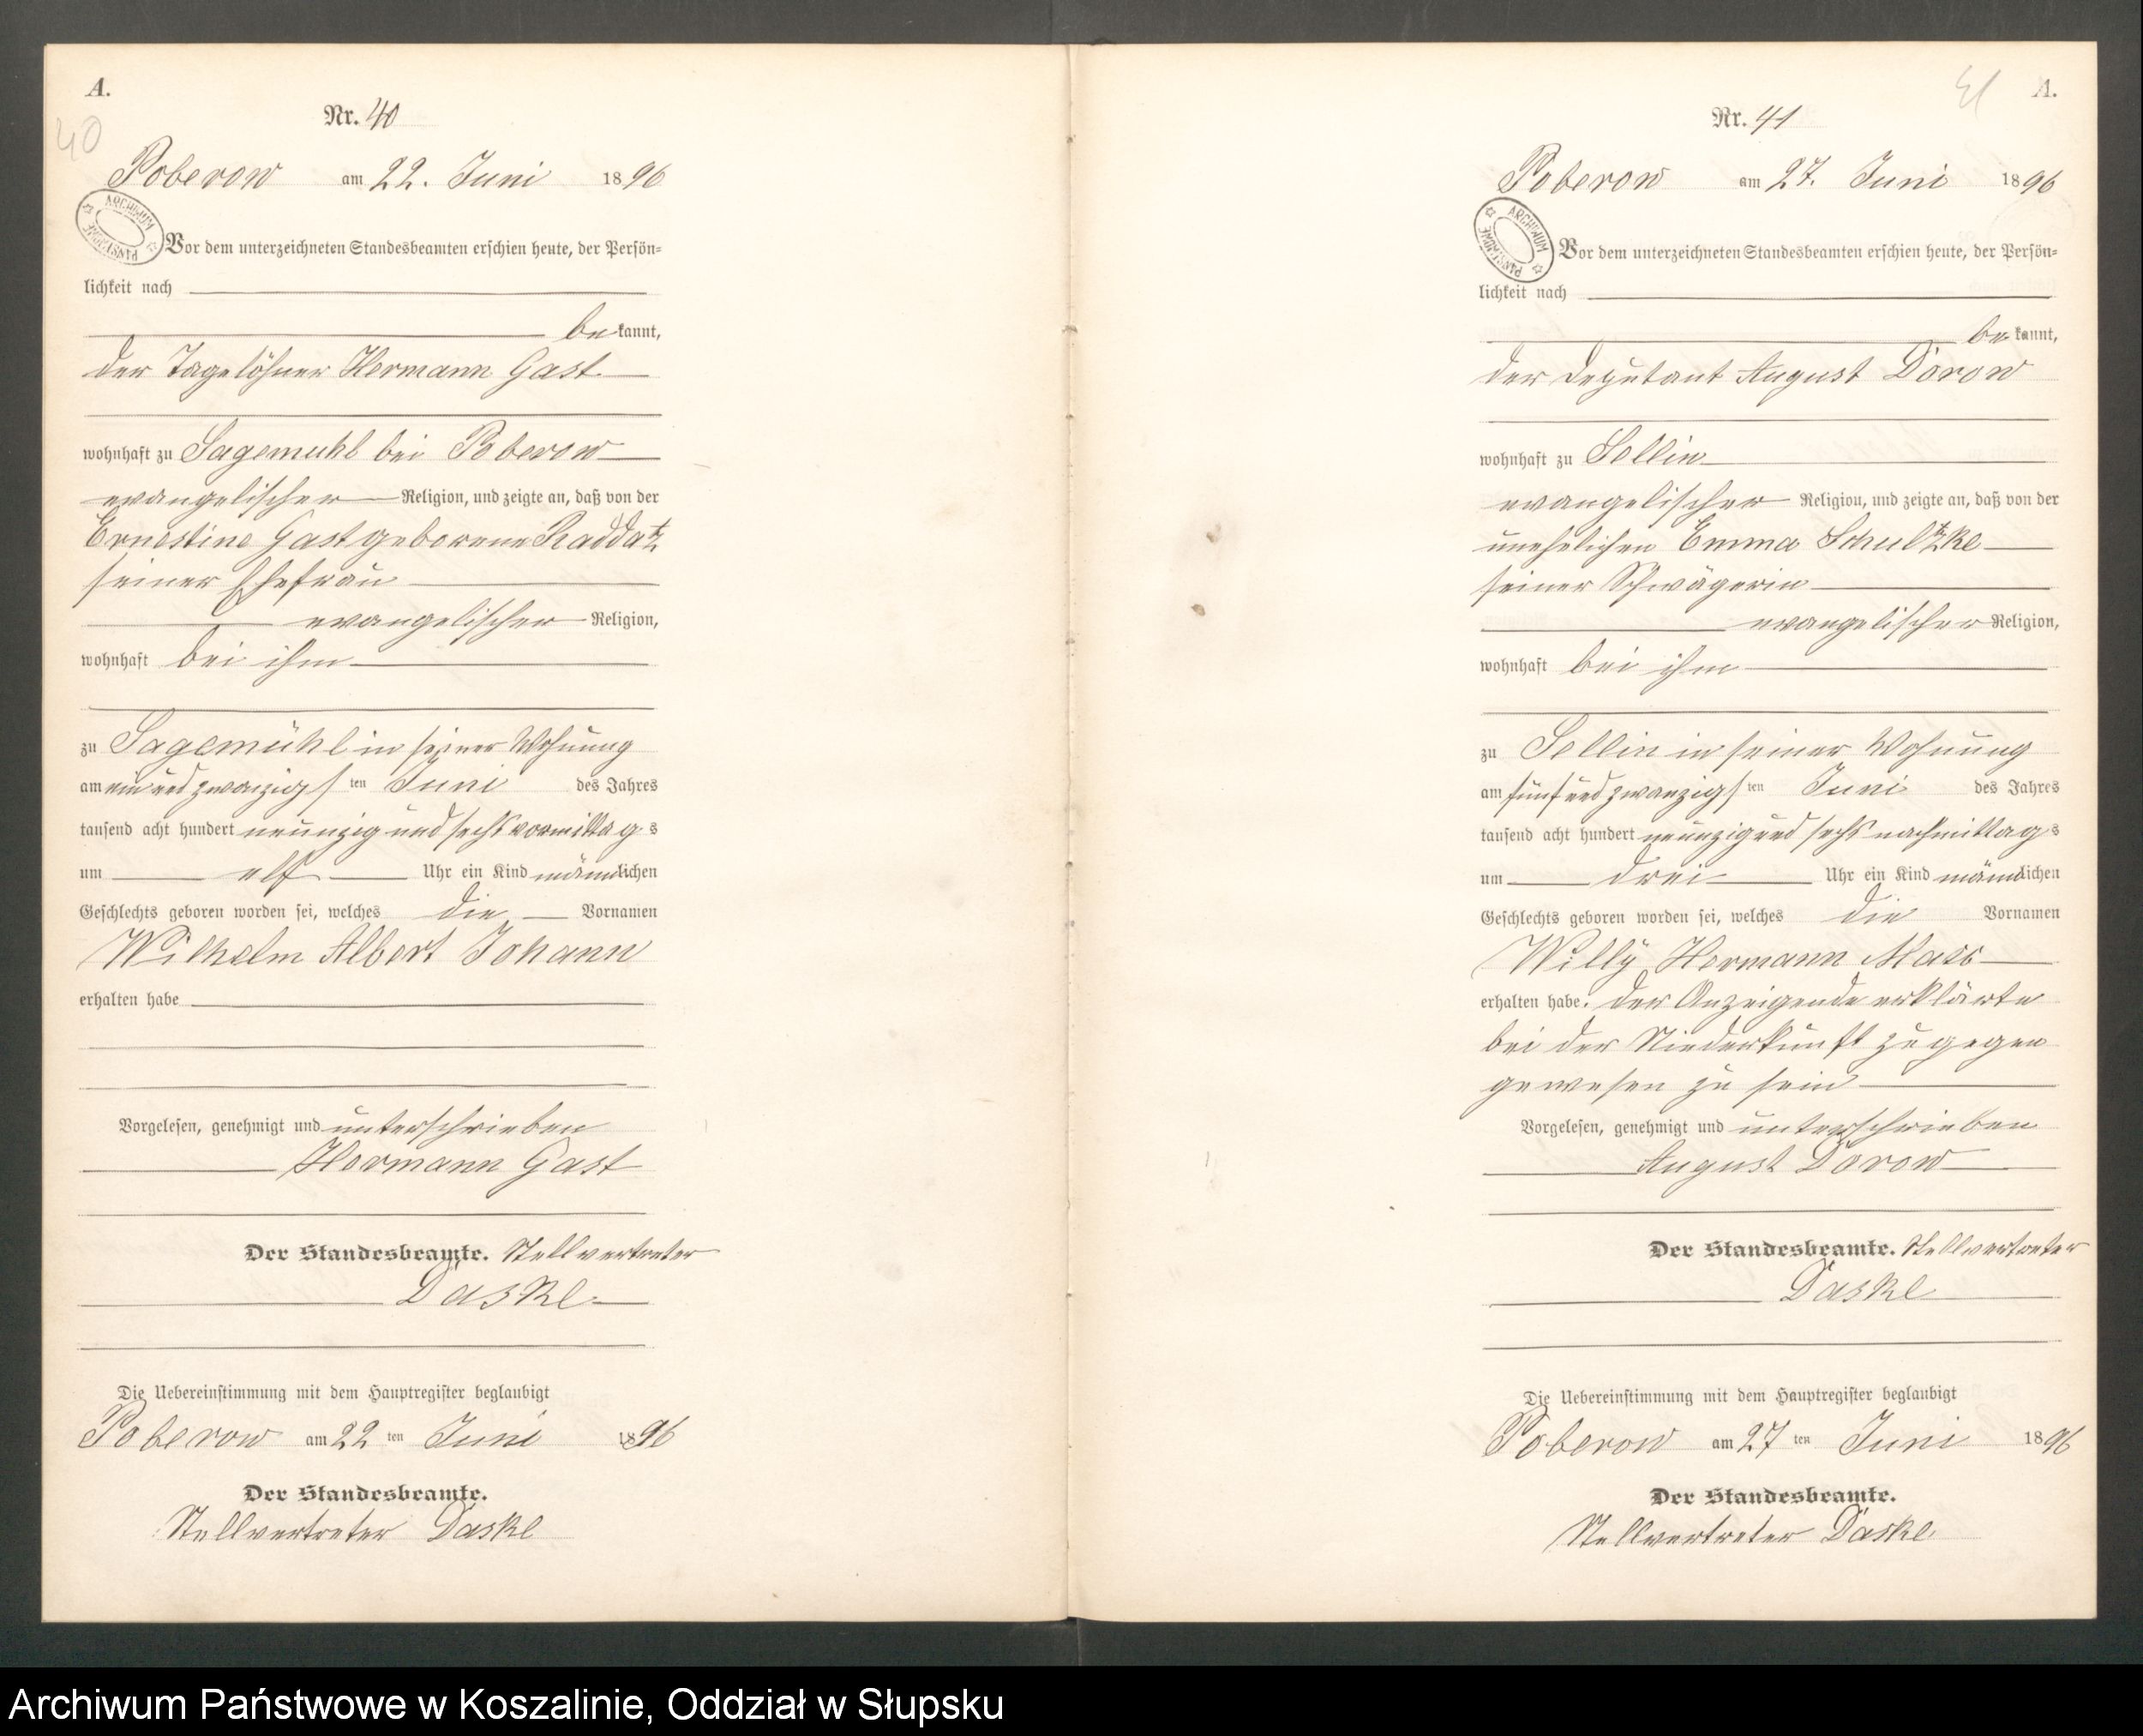 A.
40
Nr. 40
Poberow am 22. Juni 1896
ARCHIWUM PAŃSTWOWE
Vor dem unterzeichneten Standesbeamten erschien heute, der Persön-
lichkeit nach
bekannt,
der Tagelöhner Hermann Gast
wohnhaft zu Sagemühl bei Poberow
evangelischer Religion, und zeigte an, daß von der
Ernestine Gast geborenen Raddatz
seiner Ehefrau
evangelischer Religion,
wohnhaft bei ihm
zu Sagemühl in seiner Wohnung
am ein und zwanzigsten Juni des Jahres
tausend acht hundert neunzig und sechs vormittags
um elf Uhr ein Kind männlichen
Geschlechts geboren worden sei, welches die Vornamen
Wilhelm Albert Johann
erhalten habe
Vorgelesen, genehmigt und unterschrieben
Hermann Gast
Der Standesbeamte. Stellvertreter
Daske
Die Uebereinstimmung mit dem Hauptregister beglaubigt
Poberow am 22 ten Juni 1896
Der Standesbeamte.
Stellvertreter Daske
41
A.
Nr. 41
Poberow am 27. Juni 1896
ARCHIWUM PAŃSTWOWE
Vor dem unterzeichneten Standesbeamten erschien heute, der Persön-
lichkeit nach
bekannt,
der Deputant August Dorow
wohnhaft zu Sellin
evangelischer Religion, und zeigte an, daß von der
unehelichen Emma Schultzke
seiner Schwägerin
evangelischer Religion,
wohnhaft bei ihm
zu Sellin in seiner Wohnung
am fünf und zwanzigsten Juni des Jahres
tausend acht hundert neunzig und sechs nachmittags
um drei Uhr ein Kind männlichen
Geschlechts geboren worden sei, welches die Vornamen
Willy Hermann Max
erhalten habe. Der Anzeigende erklärte
bei der Niederkunft zugegen
gewesen zu sein
Vorgelesen, genehmigt und unterschrieben
August Dorow
Der Standesbeamte. Stellvertreter
Daske
Die Uebereinstimmung mit dem Hauptregister beglaubigt
Poberow am 27 ten Juni 1896
Der Standesbeamte.
Stellvertreter Daske
Archiwum Państwowe w Koszalinie, Oddział w Słupsku